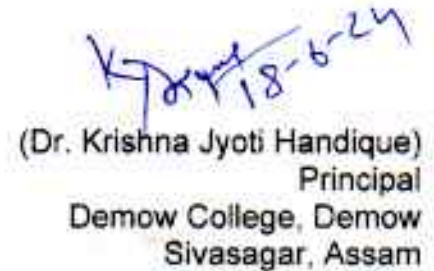 18-6-24
(Dr. Krishna Jyoti Handique)
Principal
Demow College, Demow
Sivasagar, Assam